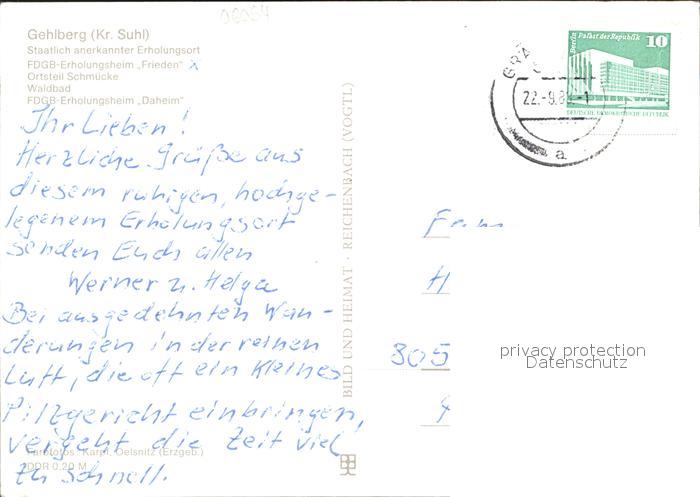 06054
Gehlberg (Kr. Suhl)
Staatlich anerkannter Erholungsort
FDGB-Erholungsheim „Frieden" x
Ortsteil Schmücke
Waldbad
FDGB-Erholungsheim „Daheim"
Ihr Lieben!
Herzliche Grüße aus
diesem ruhigen, hochge-
legenem Erholungsort
senden Euch allen
Werner u. Helga
Bei ausgedehnten Wan-
derungen in der reinen
Luft, die oft ein kleines
Pilzgericht einbringen,
vergeht die Zeit viel
zu schnell.
Farbfotos: Karpf, Oelsnitz (Erzgeb.)
DDR 0,20 M
BILD UND HEIMAT · REICHENBACH (VOGTL)
Berlin Palast der Republik
10
DEUTSCHE DEMOKRATISCHE REPUBLIK
GRÄ
22.-9.8
-1
a
Fam
H
805
privacy protection
Datenschutz